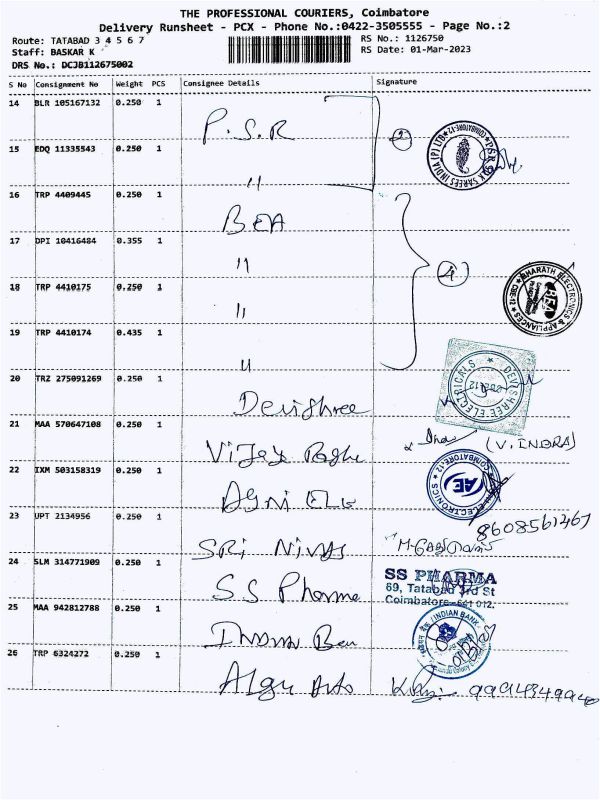 THE PROFESSIONAL COURIERS, Coimbatore
Delivery Runsheet - PCX - Phone No.:0422-3505555 - Page No.:2
Route: TATABAD 3 4 5 6 7
RS No.: 1126750
Staff: BASKAR K
RS Date: 01-Mar-2023
DRS No.: DCJB112675002
S No Consignment No Weight PCS Consignee Details Signature
14 BLR 105167132 0.250 1 P.S.R
2
15 EDQ 11335543 0.250 1 "
16 TRP 4409445 0.250 1 BEA
17 DPI 10416484 0.355 1 "
4
18 TRP 4410175 0.250 1 "
BHARATH ELECTRONICS & APPLIANCES CBE-12
19 TRP 4410174 0.435 1 "
20 TRZ 275091269 0.250 1 Devishree
DEVISHREE ELECTRICALS CBE-12
21 MAA 570647108 0.250 1 Vijay
(V. INDRA)
22 IXM 503158319 0.250 1 Agni Ele
COIMBATORE-12 AE ELECTRONICS
8608561267
23 UPT 2134956 0.250 1 SRi Nivas
24 SLM 314771909 0.250 1 SS Pharma
SS PHARMA
69, Tatabad 3rd St
Coimbatore-641 012.
25 MAA 942812788 0.250 1
INDIAN BANK
26 TRP 6324272 0.250 1